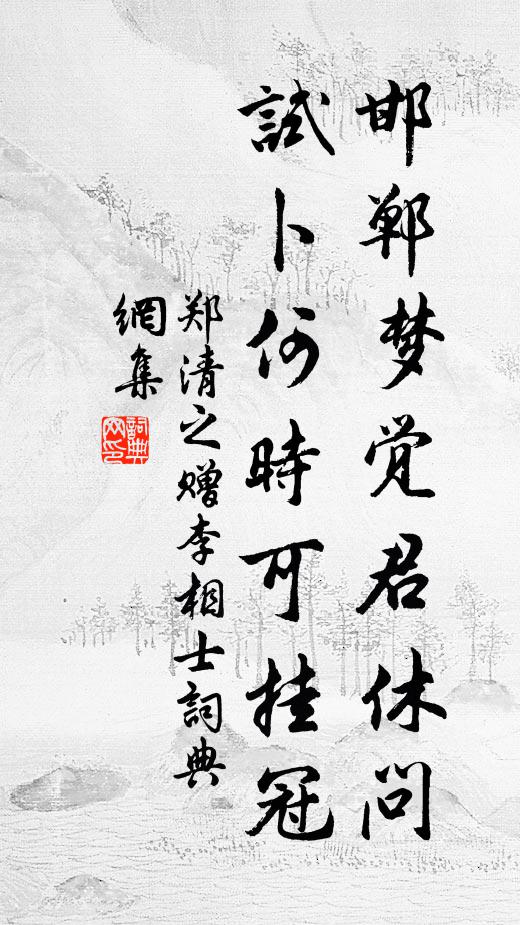 邯郸梦觉君休问
試卜何時可挂冠
郑清之赠李相士詞典
網集
詞典網印